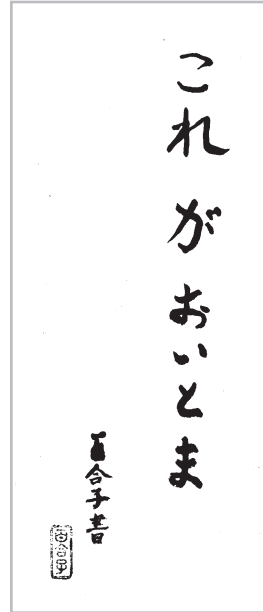 これ が おいとま
百合子書
百合子